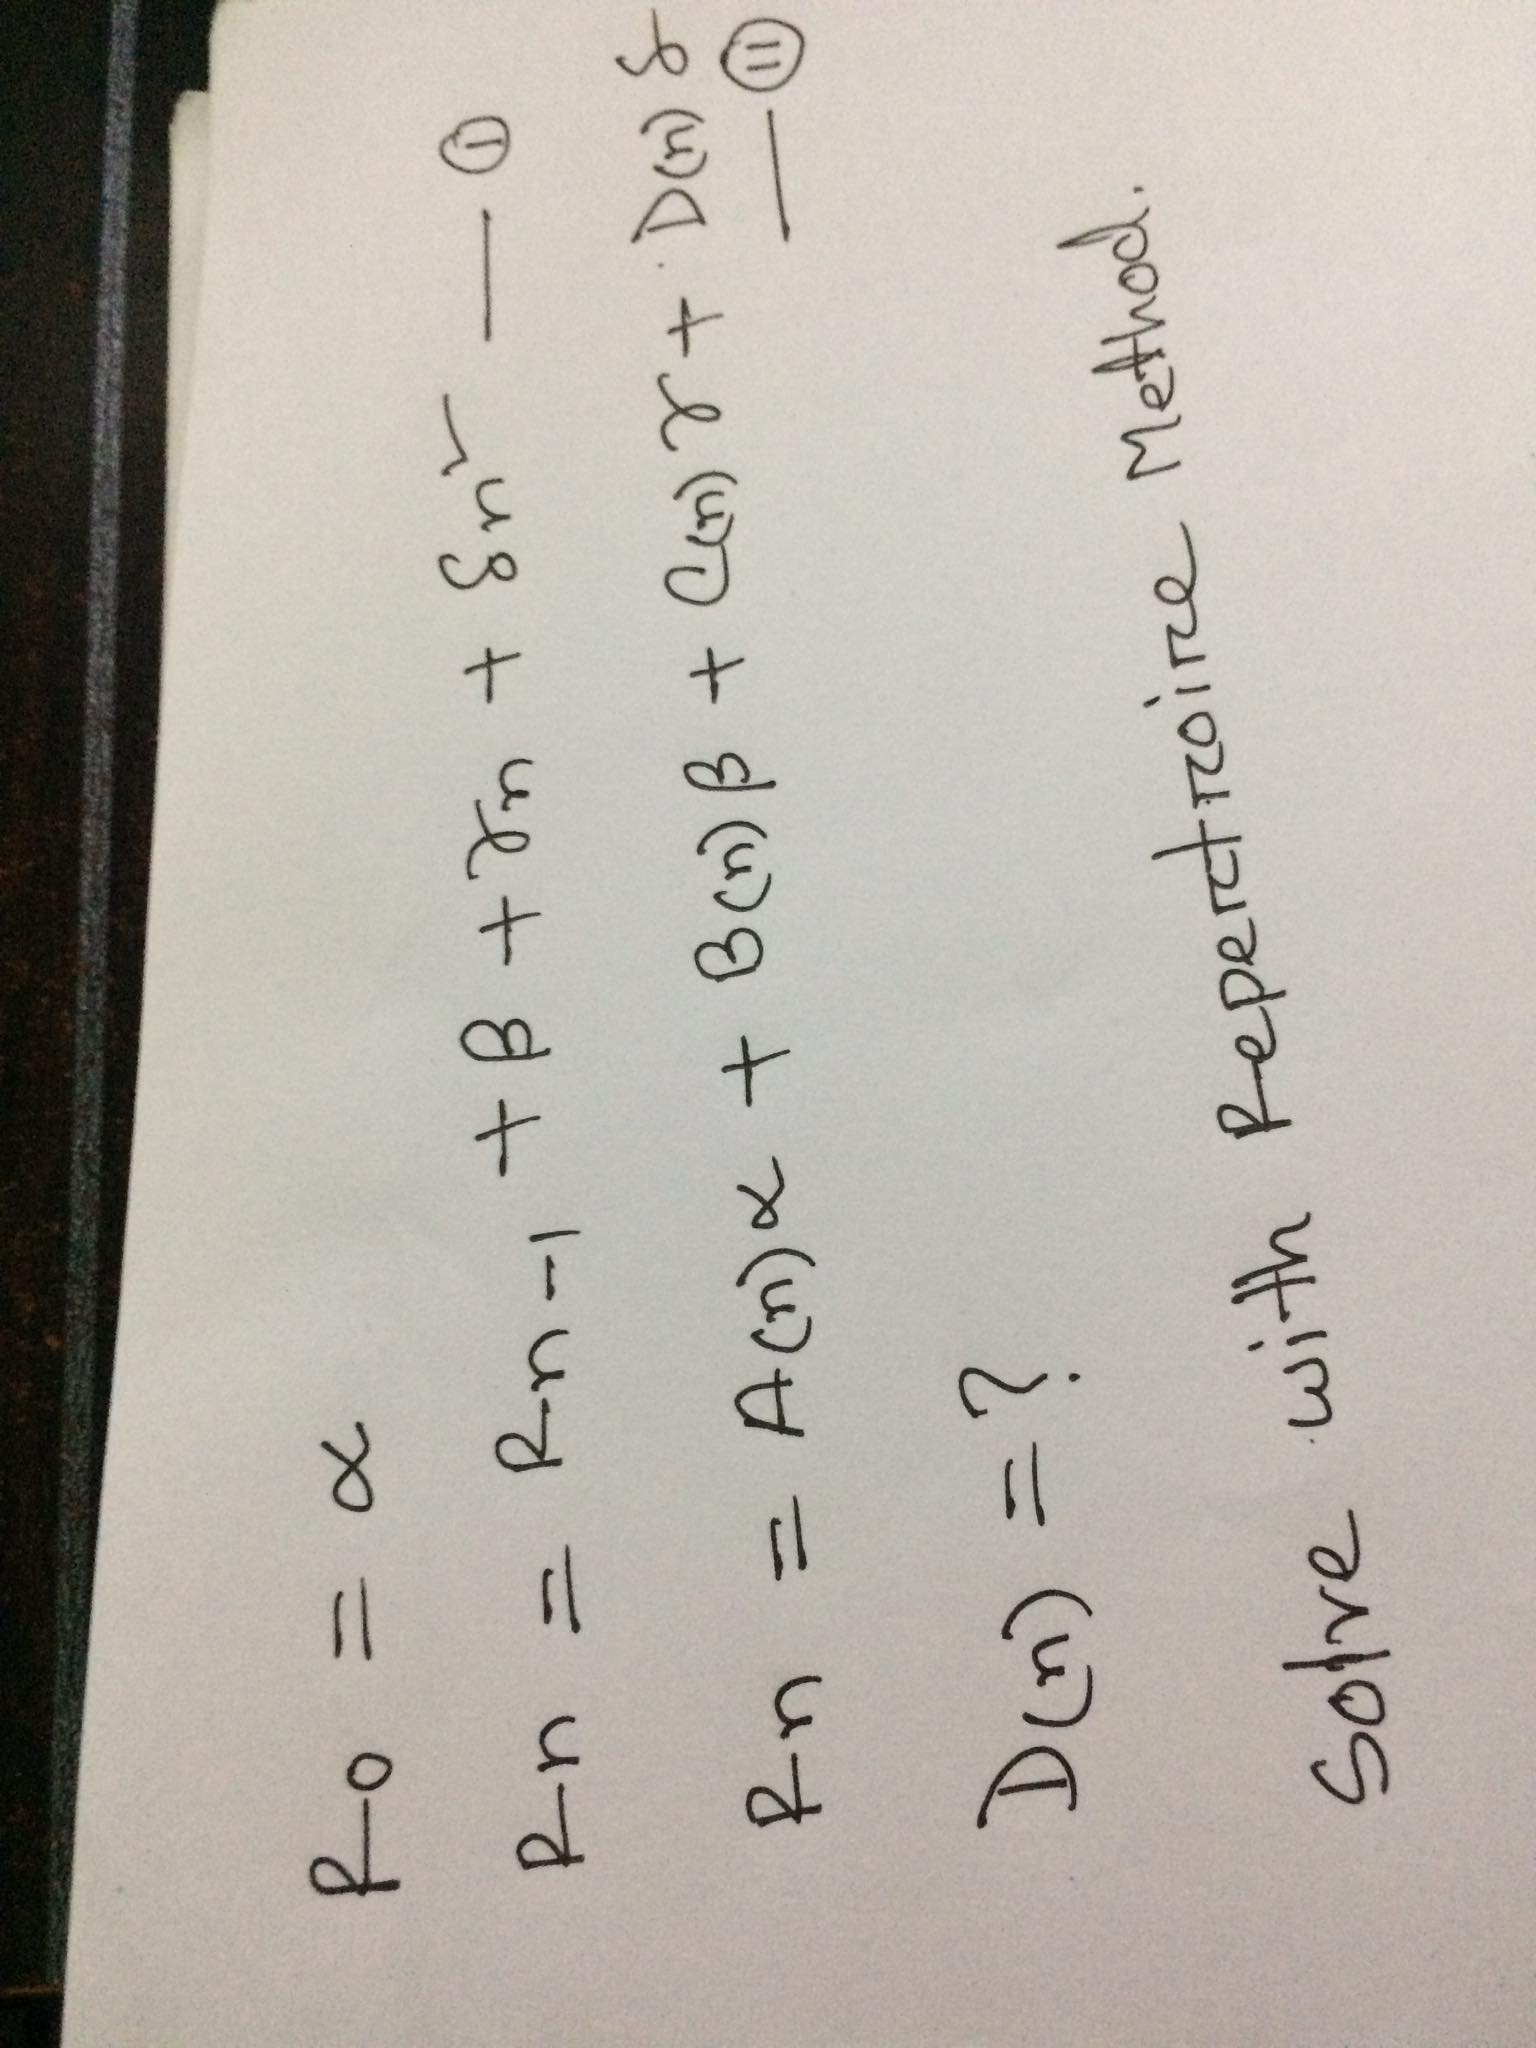 R₀ = α
Rn = Rn-1 + β + γn + δn² — ①
Rn = A(n)α + B(n)β + C(n)γ + D(n)δ
— ⑪
D(n) = ?
Solve with Repertroire Method.